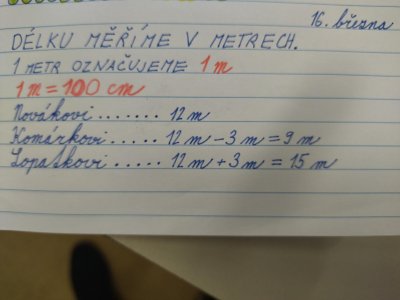 16. března
DÉLKU MĚŘÍME V METRECH.
1 METR OZNAČUJEME 1 m
1 m = 100 cm
Novákovi ........ 12 m
Komárkovi ..... 12 m - 3 m = 9 m
Lopatkovi ...... 12 m + 3 m = 15 m